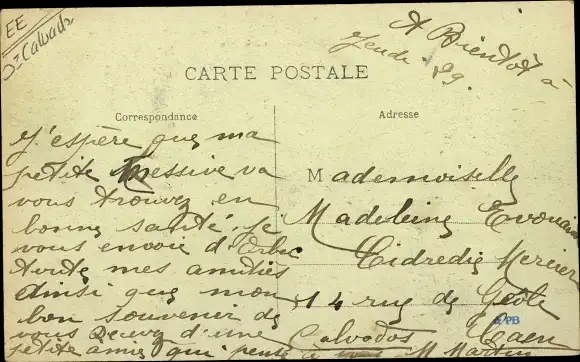 EE
Calvados
A Bientôt à
Jeudi 29.
CARTE POSTALE
Correspondance
Adresse
J'espère que ma
petite missive va
vous trouvez en
bonne santé, je
vous envoie d'Orbec
toute mes amitiés
ainsi que mon
bon souvenir de
vous Recevez d'une
petite amie qui pense à vous M. Martin
Mademoiselle
Madeleine
Mercier
14 rue de Geôle
Caen
Calvados
PB